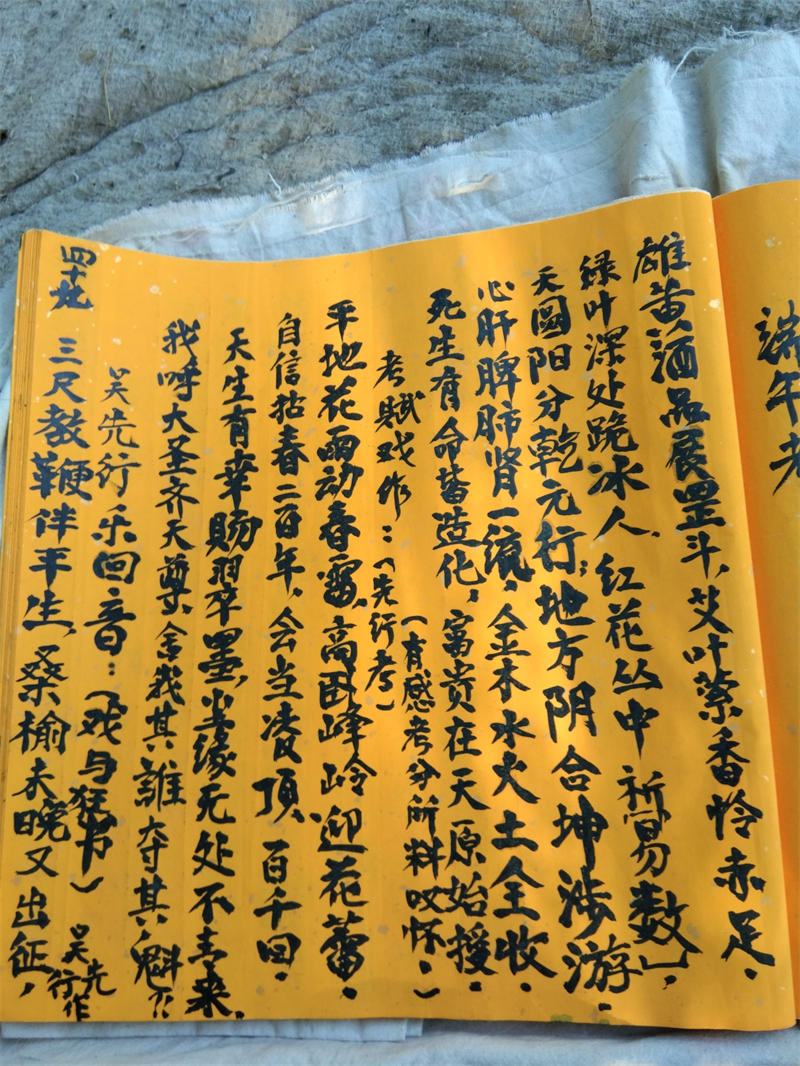 端午考
雄黄酒品展罡斗，艾叶萦香怜赤足。
绿叶深处跪冰人，红花丛中祈易数，
天圆阳分乾元行；地方阴合坤涉游。
心肝脾肺肾一流，金木水火土全收。
死生有命蓄造化，富贵在天原始授。
（有感考分所料叹怀。）
考赋戏作：（先行考）
平地花雨动春雷，高卧峰岭迎花蕾。
自信拈春二百年，会当凌顶百千回。
天生有幸赐翠墨，尘缘无处不青来。
我呼大圣齐天尊，舍我其誰夺其魁？！
吴先行乐回音：（戏与狂书）
吴先行作
三尺教鞭伴平生，桑榆未晚又出征，
四十九